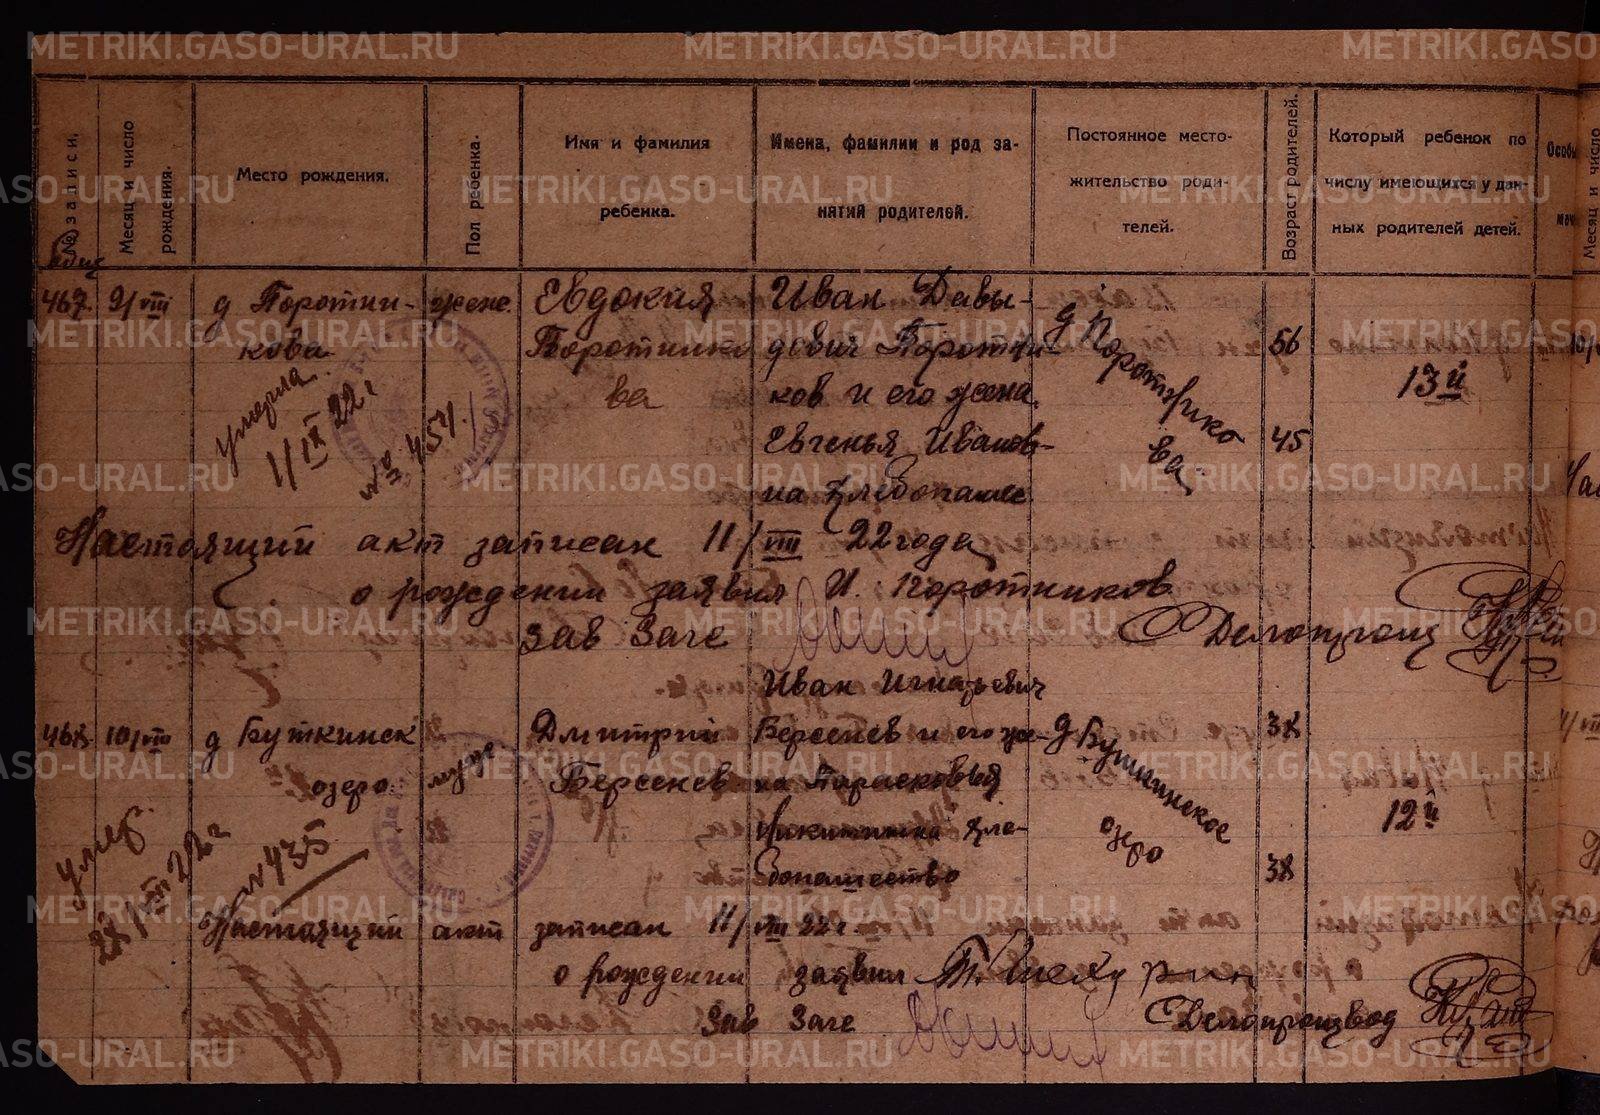 METRIKI.GASO-URAL.RU
№ записи.
Месяц и число рождения.
Место рождения.
Пол ребенка.
Имя и фамилия ребенка.
Имена, фамилии и род занятий родителей.
Постоянное место-
жительство роди-
телей.
Возраст родителей.
Который ребенок по
числу имеющихся у дан-
ных родителей детей.
467. 9/VIII
д Поротни-
кова
умерла
1/IX 22 г
№ 454.
женс.
Евдокия
Поротнико
ва
Иван Давы-
дович Поротни-
ков и его жена
Евгенья Иванов-
на хлебопашес
д Поротнико
ва
56
45
13й
Настоящий акт записан 11/VIII 22 года
о рождении заявил И. Поротников
Зав Загс
Делопроизв
468. 10/VIII
д Буткинск
озеро
умер.
28/VIII 22 г
№ 435
муже
Дмитрий
Берсенев
Иван Игнатьевич
Берсенев и его же-
на Парасковья
Никитишна хле-
бопашество
д Буткинское
озеро
38
38
12й
Настоящий акт записан 11/VIII 22 г
о рождении заявил
Зав Загс
Делопроизвод